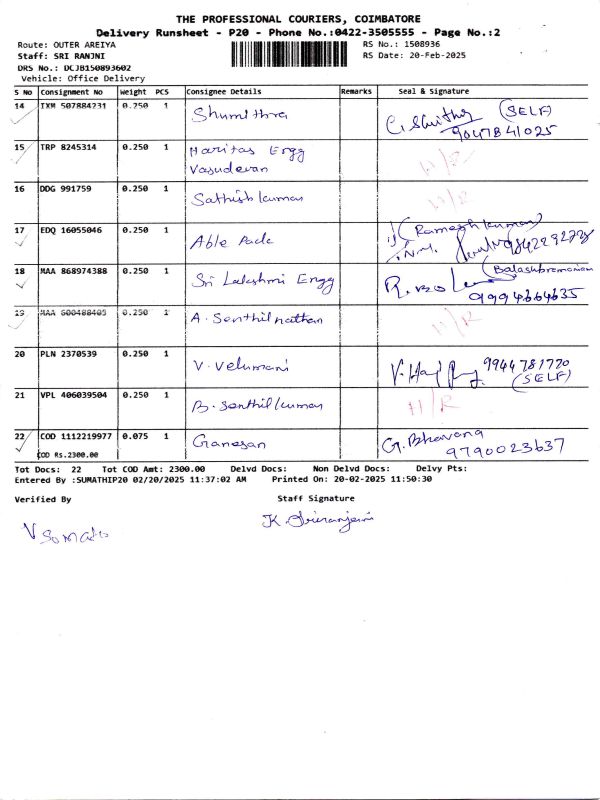 THE PROFESSIONAL COURIERS, COIMBATORE
Delivery Runsheet - P20 - Phone No.:0422-3505555 - Page No.:2
Route: OUTER AREIYA RS No.: 1508936
Staff: SRI RANJNI RS Date: 20-Feb-2025
DRS No.: DCJB150893602
Vehicle: Office Delivery
S No Consignment No Weight PCS Consignee Details Remarks Seal & Signature
14 IXM 507884231 0.250 1 Shumithra (SELF)
9047841025
15 TRP 8245314 0.250 1 Haritas Engg H/R
Vasudevan
16 DDG 991759 0.250 1 Sathish kumar H/R
17 EDQ 16055046 0.250 1 Able Pack (Rameshkumar)
18 MAA 868974388 0.250 1 Sri Lakshmi Engg (Balasubramaniam
9994664635
19 MAA 600488405 0.250 1 A. Senthilnathan H/R
20 PLN 2370539 0.250 1 V. Velumani 9944781770
(SELF)
21 VPL 406039504 0.250 1 B. Senthil kumar H/R
22 COD 1112219977 0.075 1 Ganesan G. Bhavana
COD Rs.2300.00 9790023637
Tot Docs: 22 Tot COD Amt: 2300.00 Delvd Docs: Non Delvd Docs: Delvy Pts:
Entered By :SUMATHIP20 02/20/2025 11:37:02 AM Printed On: 20-02-2025 11:50:30
Verified By Staff Signature